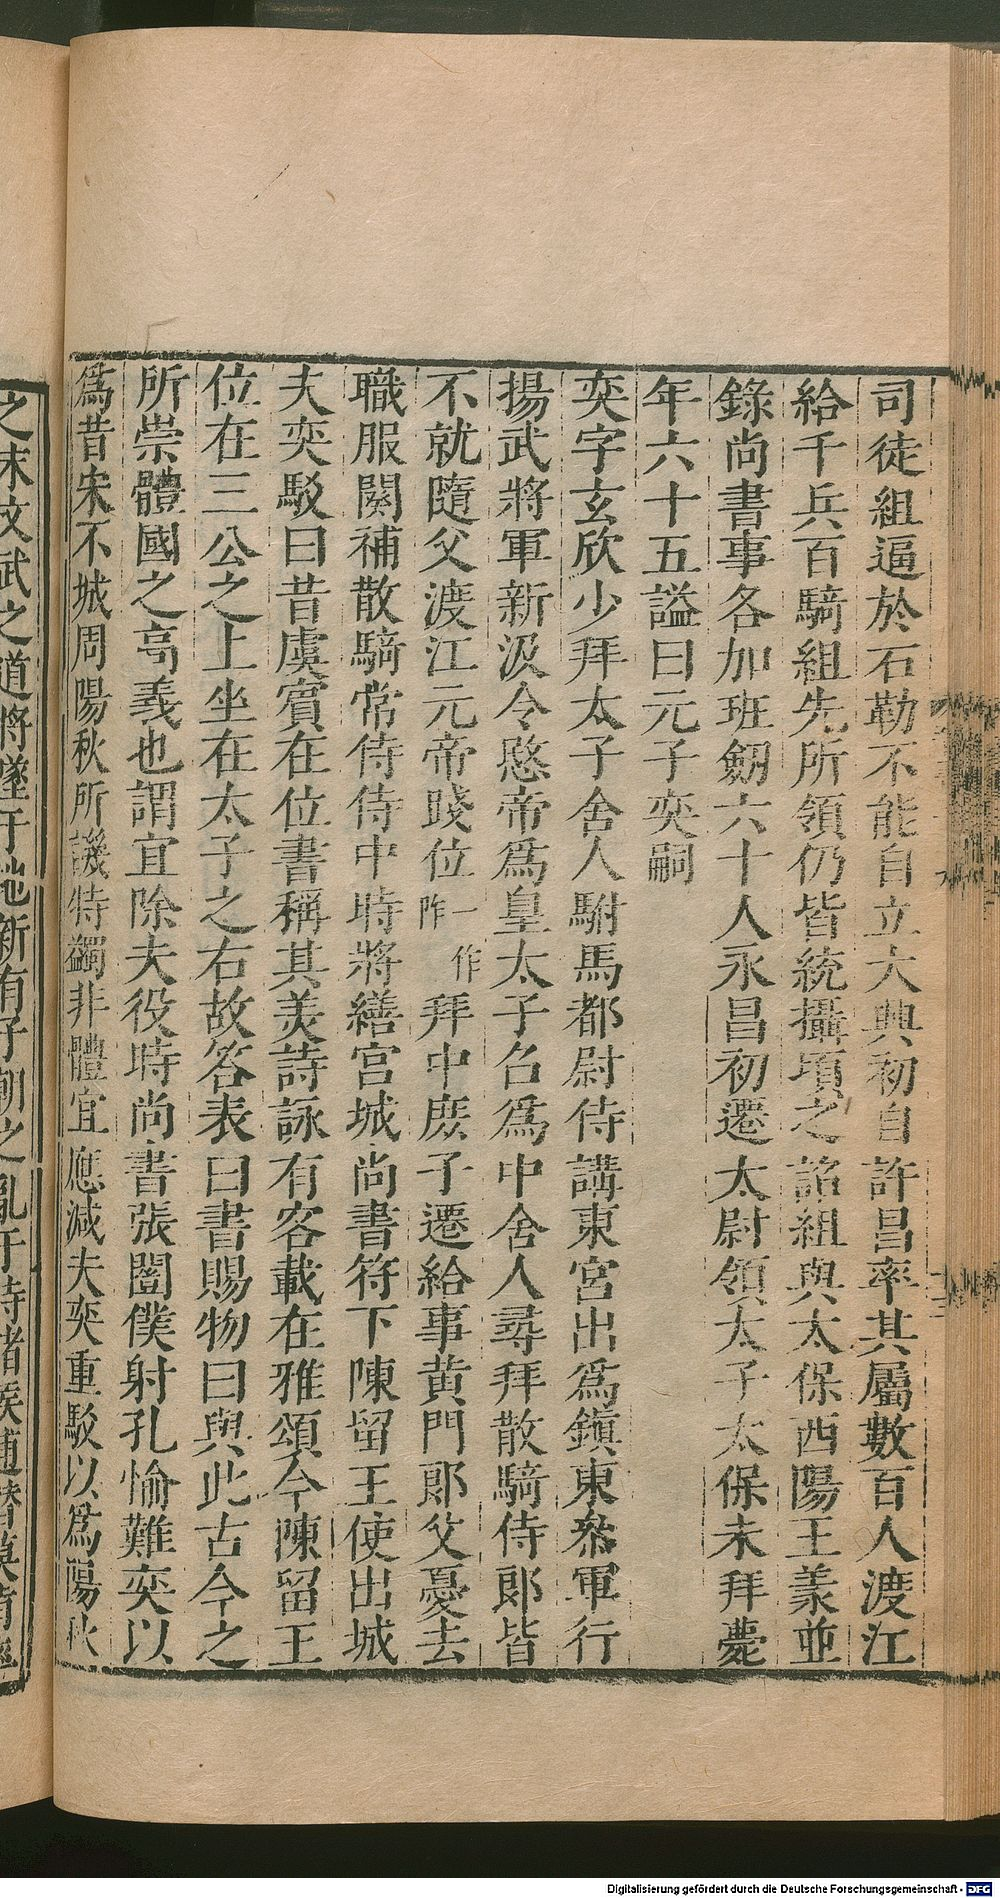 司徒組逼於石勒不能自立大興初自許昌率其屬數百人渡江
給千兵百騎組先所領仍皆統攝頃之詔組與太保西陽王羕並
錄尚書事各加班劒六十人永昌初遷太尉領太子太保未拜薨
年六十五謚曰元子奕嗣
奕字玄欣少拜太子舍人駙馬都尉侍講東宮出爲鎭東叅軍行
揚武將軍新汲令愍帝爲皇太子召爲中舍人尋拜散騎侍郎皆
不就隨父渡江元帝踐位一作阼拜中庶子遷給事黃門郎父憂去
職服闋補散騎常侍侍中時將繕宮城尚書符下陳留王使出城
夫奕駁曰昔虞賓在位書稱其美詩詠有客載在雅頌今陳留王
位在三公之上坐在太子之右故答表曰書賜物曰與此古今之
所崇體國之高義也謂宜除夫役時尚書張闓僕射孔愉難奕以
爲昔宋不城周陽秋所譏特蠲非體宜應減夫奕重駁以爲陽秋
之末文武之道將墜于地新有子朝之亂于時諸侯逋替莫肯
Digitalisierung gefördert durch die Deutsche Forschungsgemeinschaft - DFG